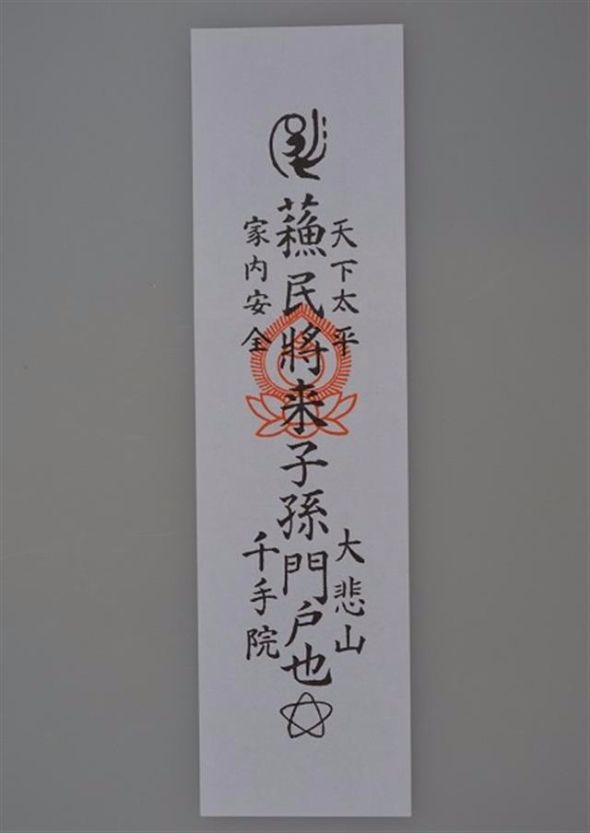 天下太平
大悲山
蘓民將来子孫門户也
家内安全
千手院